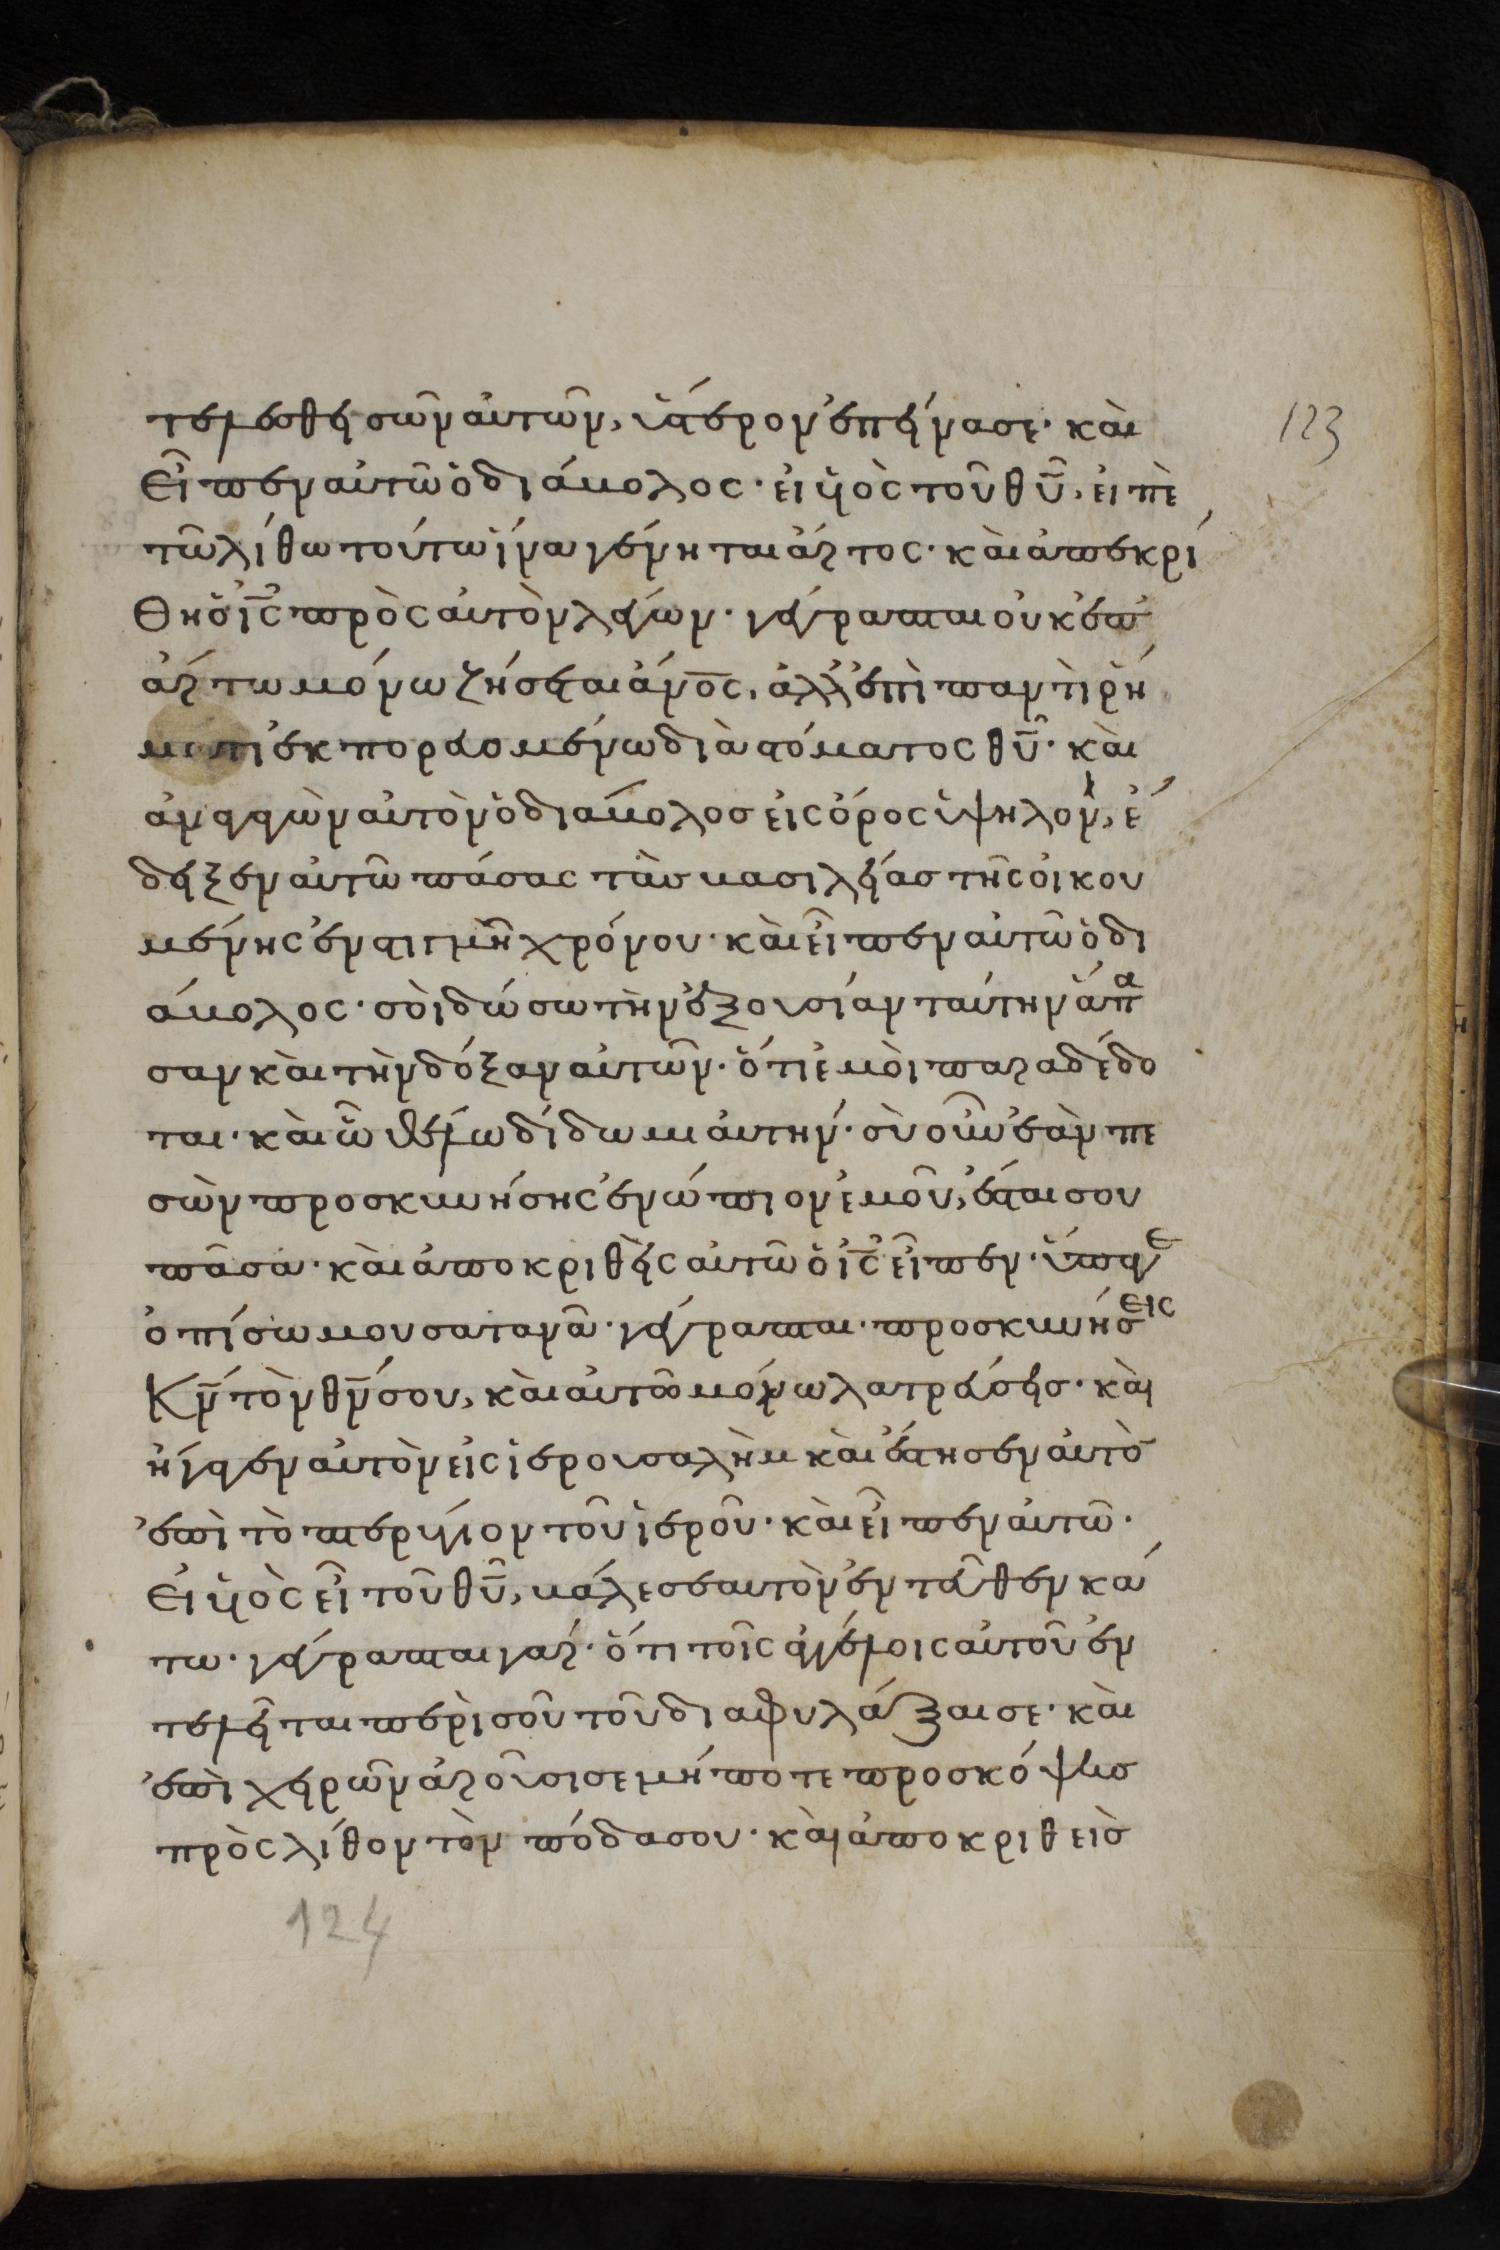 τελεσθεισῶν αὐτῶν, ὕστερον ἐπείνασε· καὶ
εἶπεν αὐτῶ ὁ διάβολος· εἰ υἱὸς τοῦ θῦ, εἰπὲ
τῶ λίθω τούτω ἵνα γένηται ἄρτος· καὶ ἀπεκρί
θη ὁ ἰς πρὸς αὐτὸν λέγων· γέγραπται οὐκ ἐπ
ἄρτω μόνω ζήσεται ἄνος, ἀλλ' ἐπὶ παντὶ ῥή
ματι ἐκπορευομένω διὰ στόματος θῦ· καὶ
ἀναγαγὼν αὐτὸν ὁ διάβολοσ εἰς ὄρος ὑψηλὸν, ἔ
δειξεν αὐτῶ πάσας τὰσ βασιλείασ τῆς οἰκου
μένης ἐν στιγμῆ χρόνου· καὶ εἶπεν αὐτῶ ὁ δι
άβολος· σοὶ δώσω τὴν ἐξουσίαν ταύτην ἅπα
σαν καὶ τὴν δόξαν αὐτῶν· ὅτι ἐμοὶ παραδέδο
ται· καὶ ὧ ἐὰν θέλω δίδωμι αὐτην· σὺ οὖν ἐὰν πε
σὼν προσκυνήσης ἐνώπιον ἐμοῦ, ἔσται σου
πᾶσα· καὶ ἀποκριθεὶς αὐτῶ ὁ ἰς εἶπεν· ὕπαγε
ὀπίσω μου σατανᾶ· γέγραπται· προσκυνήσεις
Κν τὸν θν σου, καὶ αὐτῶ μόνω λατρεύσεισ· καὶ
ἤγαγεν αὐτὸν εἰς ἱερουσαλὴμ καὶ ἔστησεν αὐτὸ
ἐπὶ τὸ πτερύγιον τοῦ ἱεροῦ· καὶ εἶπεν αὐτῶ·
Εἰ υἱὸς εἶ τοῦ θῦ, βάλε σεαυτὸν ἐντεῦθεν κά
τω· γέγραπται γαρ· ὅτι τοῖς ἀγγέλοις αὐτοῦ ἐν
τελεῖται περὶ σοῦ τοῦ διαφυλάξαι σε· καὶ
ἐπὶ χειρῶν ἀροῦσι σε μήποτε προσκόψεισ
πρὸς λίθον τὸν πόδα σου· καὶ ἀποκριθεὶσ
123
124